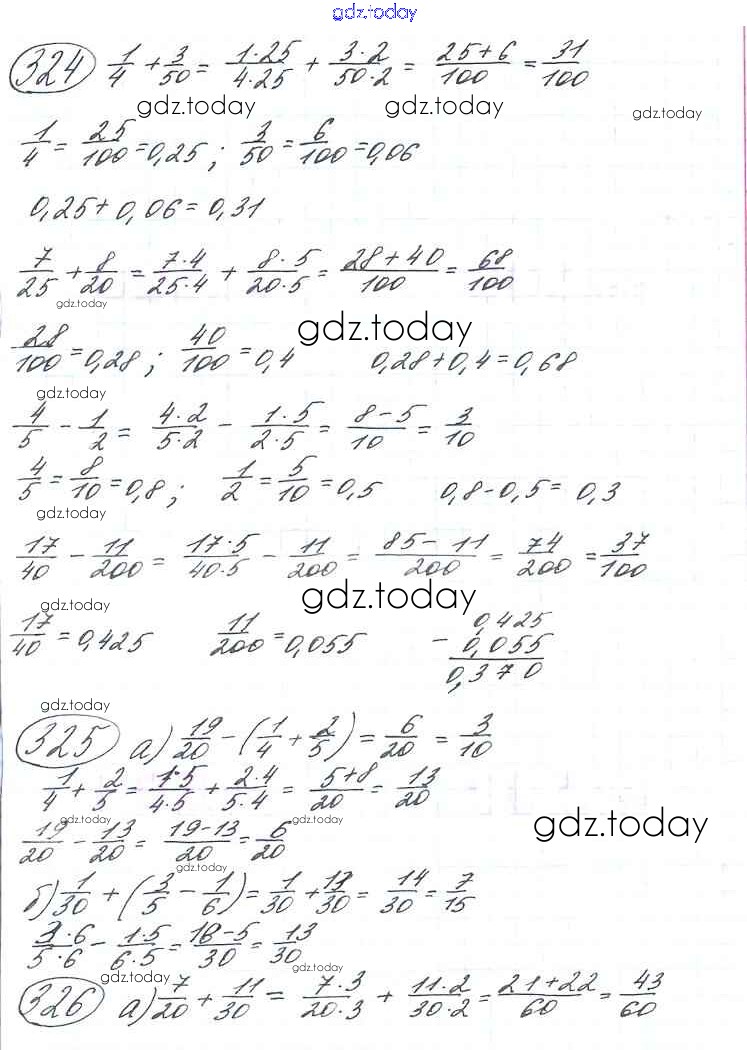 gdz.today
324 1/4 + 3/50 = 1·25/4·25 + 3·2/50·2 = 25+6/100 = 31/100
gdz.today gdz.today gdz.today
1/4 = 25/100 = 0,25 ; 3/50 = 6/100 = 0,06
0,25 + 0,06 = 0,31
7/25 + 8/20 = 7·4/25·4 + 8·5/20·5 = 28+40/100 = 68/100
gdz.today
gdz.today
28/100 = 0,28 ; 40/100 = 0,4 0,28 + 0,4 = 0,68
gdz.today
4/5 - 1/2 = 4·2/5·2 - 1·5/2·5 = 8-5/10 = 3/10
4/5 = 8/10 = 0,8 ; 1/2 = 5/10 = 0,5 0,8 - 0,5 = 0,3
gdz.today
17/40 - 11/200 = 17·5/40·5 - 11/200 = 85-11/200 = 74/200 = 37/100
gdz.today gdz.today
17/40 = 0,425 11/200 = 0,055 0,425
- 0,055
0,370
gdz.today
325 а) 19/20 - (1/4 + 2/5) = 6/20 = 3/10
1/4 + 2/5 = 1·5/4·5 + 2·4/5·4 = 5+8/20 = 13/20
gdz.today gdz.today gdz.today
19/20 - 13/20 = 19-13/20 = 6/20
gdz.today
б) 1/30 + (3/5 - 1/6) = 1/30 + 13/30 = 14/30 = 7/15
3·6/5·6 - 1·5/6·5 = 18-5/30 = 13/30
gdz.today gdz.today
326 а) 7/20 + 11/30 = 7·3/20·3 + 11·2/30·2 = 21+22/60 = 43/60